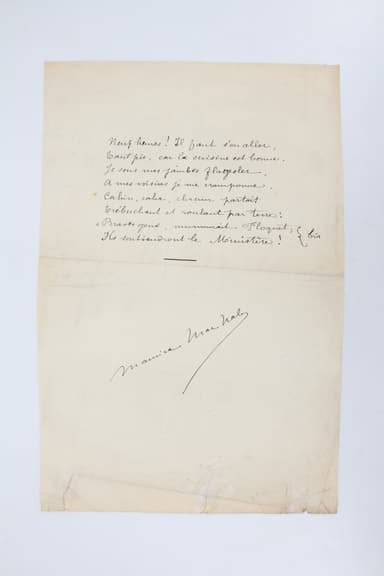 Neuf heures ! Il faut s'en aller.
Tant pis, car la cuisine est bonne.
Je sens mes jambes flageoler.
A mes voisins je me cramponne.
Cahin, caha, chacun partait
Trébuchant et roulant par terre :
« Braves gens, murmurait Floquet, } bis
Ils soutiendront le Ministère !
Maurice Mac-Nab